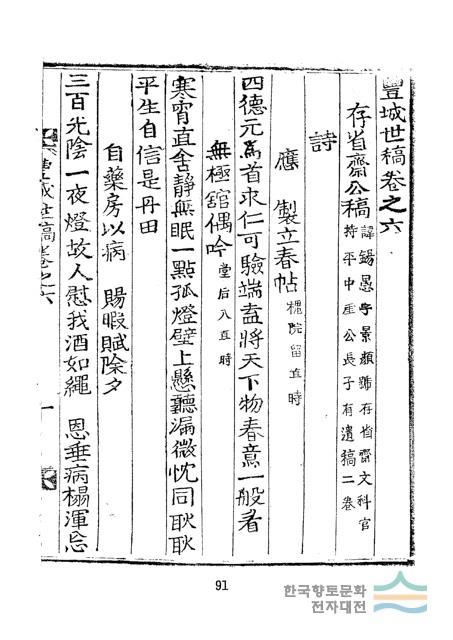 豐城世稿卷之六
存省齋公稿 諱錫愚字景顔號存省齋文科官
持平中垕公長子有遺稿二卷
詩
應 製立春帖 槐院留直時
四德元爲首求仁可驗端盍將天下物春意一般看
無極舘偶吟 堂后入直時
寒宵直舍靜無眠一點孤燈壁上懸聽漏微忱同耿耿
平生自信是丹田
自藥房以病 賜暇賦除夕
三百光陰一夜燈故人慰我酒如繩 恩垂病榻渾忘
豊城世稿卷之六 一
91
한국향토문화
전자대전